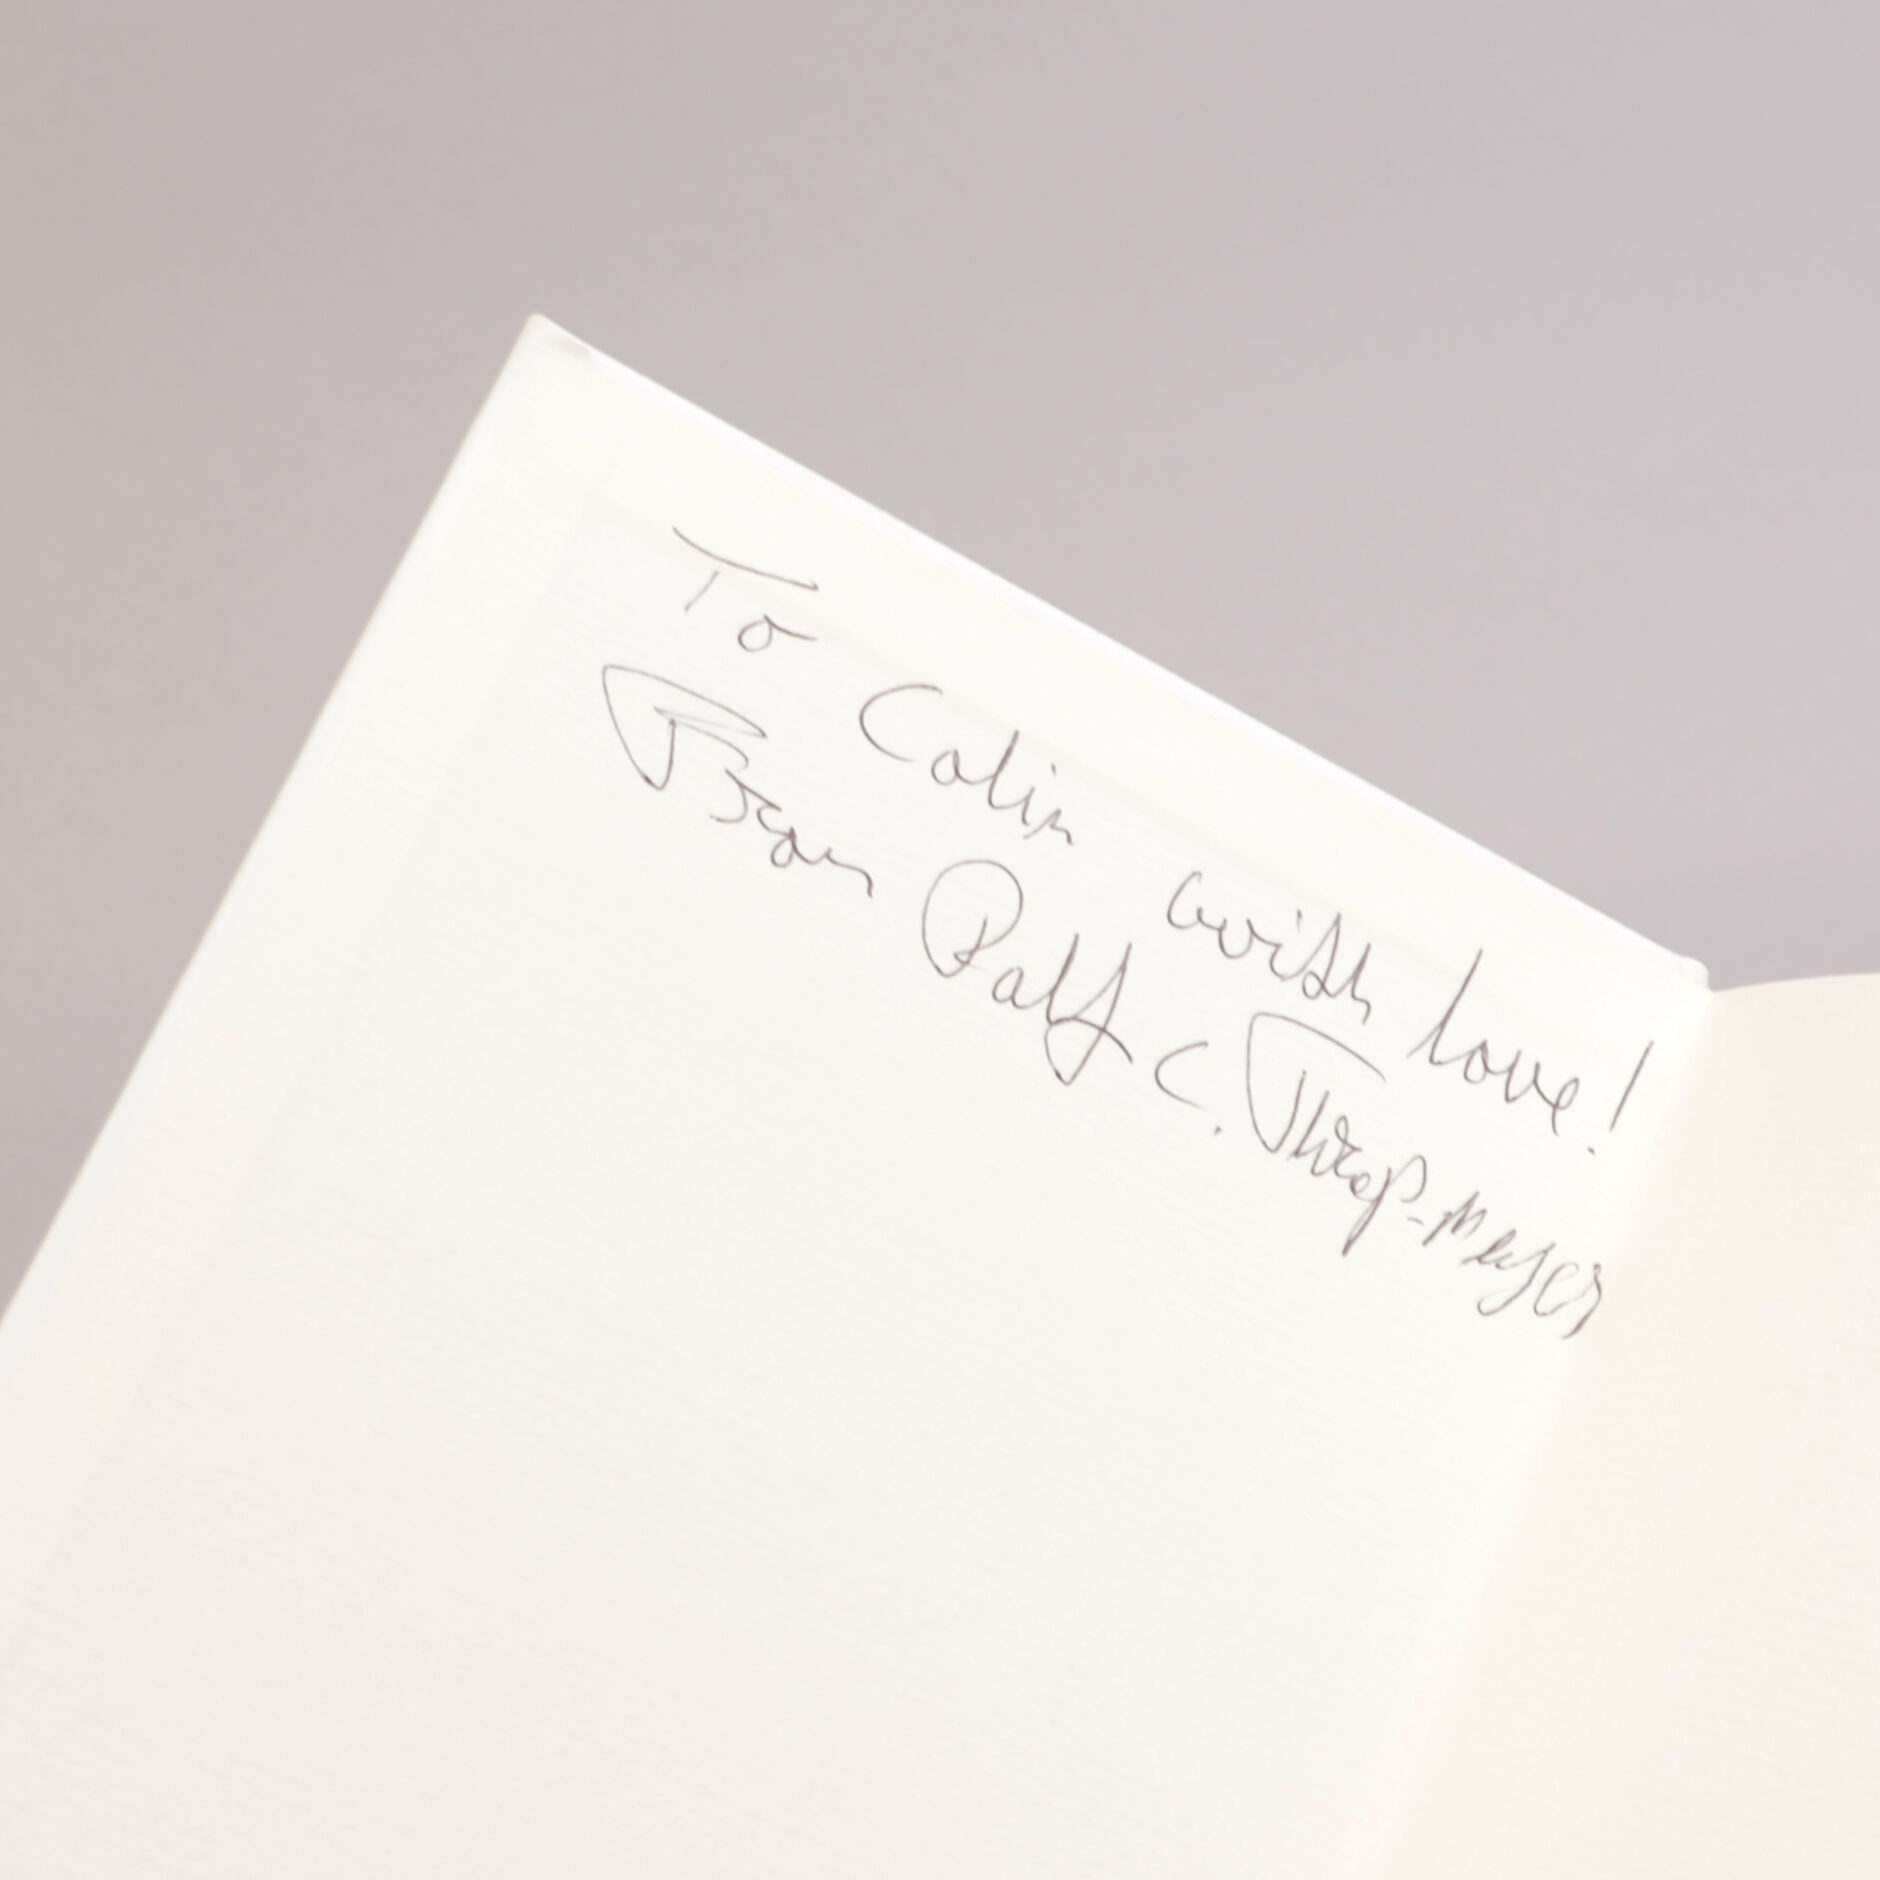 To Colin with love!
Ralf C. Thrap-Meyer